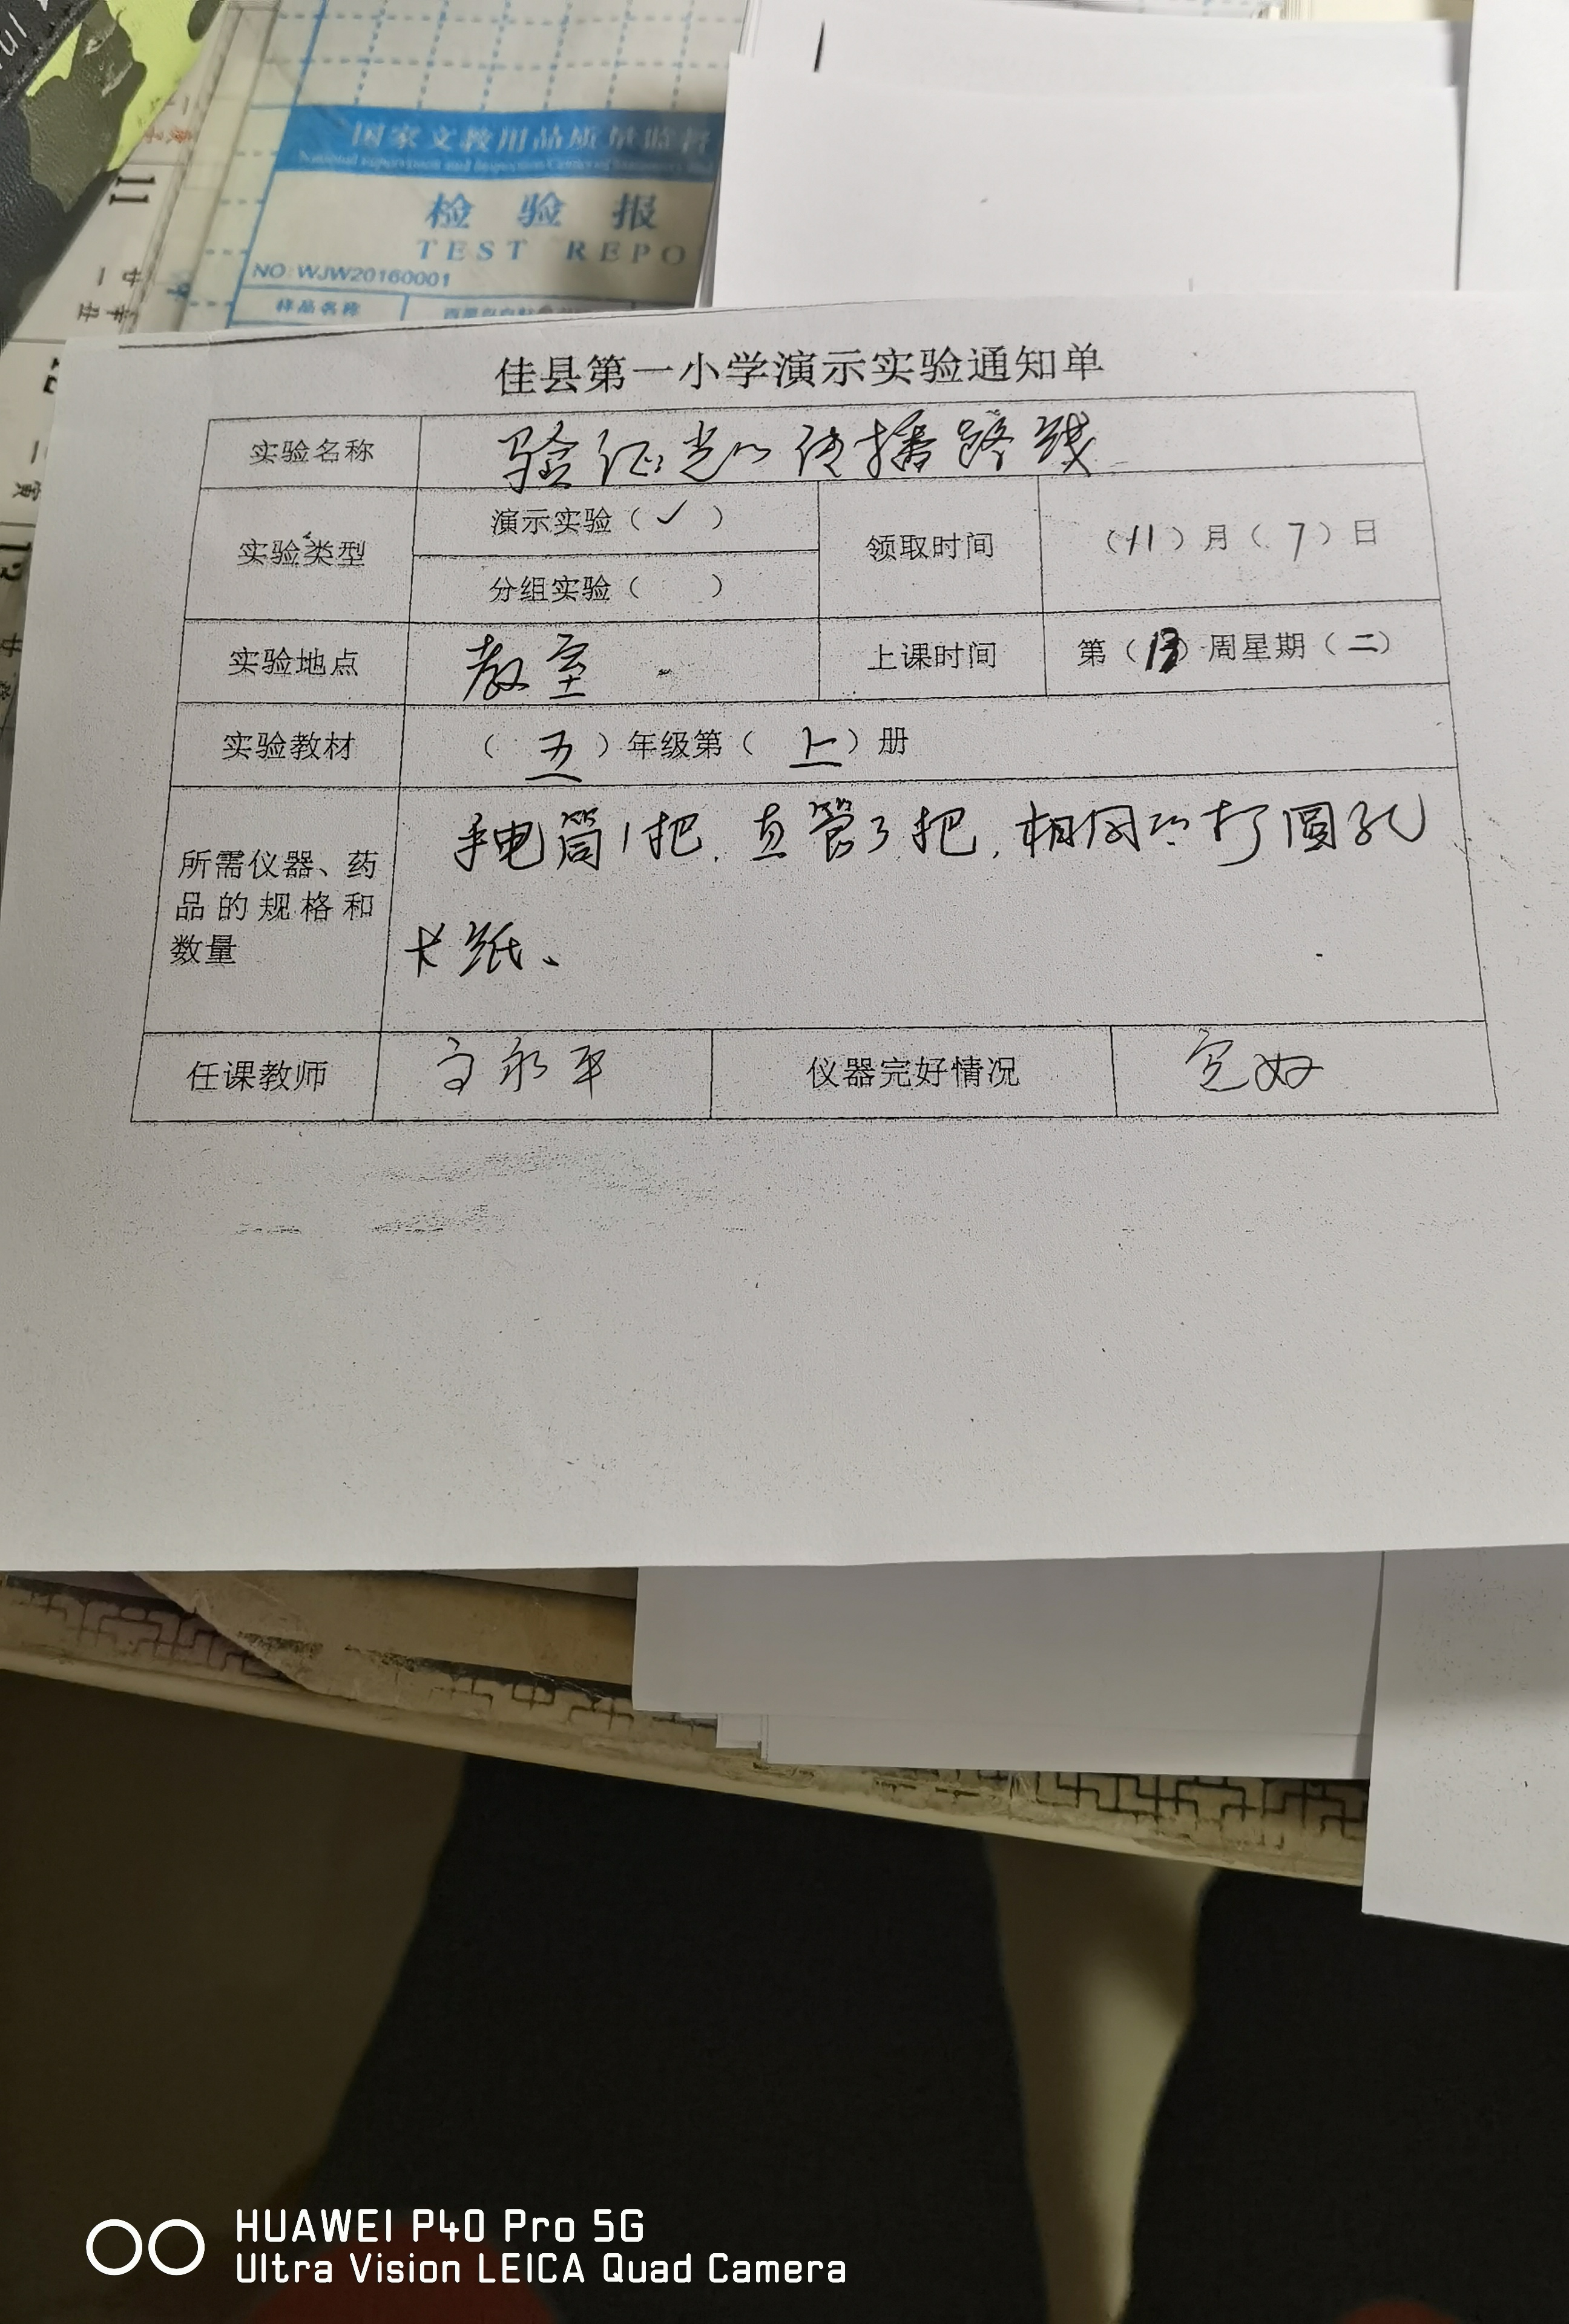 国家文教用品质量监督
National Supervision and Inspection Center of
检 验 报
TEST REPO
NO: WJW20160001
样品名称
佳县第一小学演示实验通知单
实验名称 验证光的传播路线
实验类型 演示实验（✓） 领取时间 （11）月（7）日
分组实验（ ）
实验地点 教室 上课时间 第（13）周星期（二）
实验教材 （五）年级第（上）册
所需仪器、药品的规格和数量 手电筒1把，直管3把，相同的打圆孔
卡纸、
任课教师 永平 仪器完好情况 完好
HUAWEI P40 Pro 5G
Ultra Vision LEICA Quad Camera